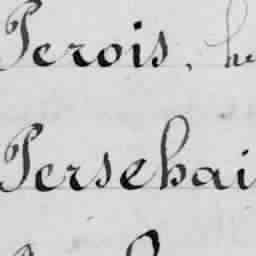 Perois, he
Persehai